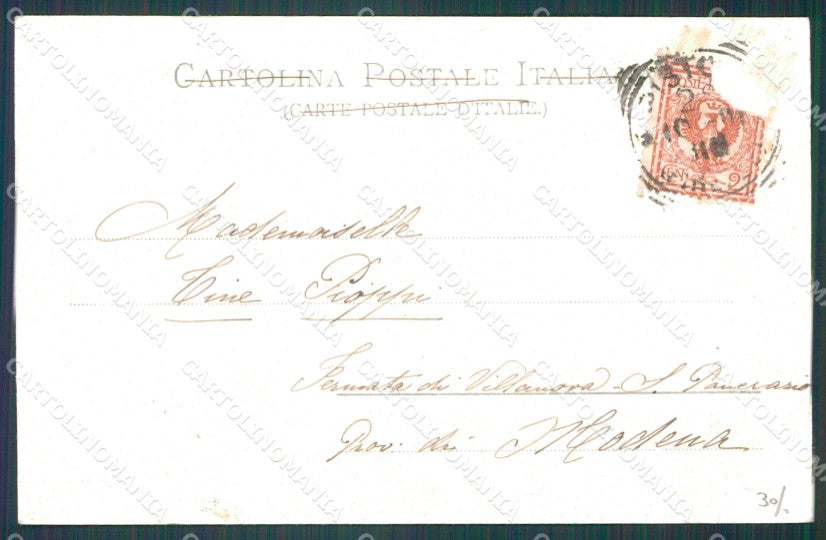 CARTOLINA POSTALE ITALIA
(CARTE POSTALE D'ITALIE.)
Mademoiselle
Tine Pioppi
Fermata di Villanova - S. Pancrazio
Prov. di Modena
30/.
CARTOLINOMANIA